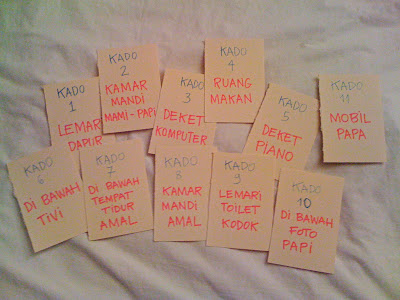 KADO
1
LEMARI
DAPUR
KADO
2
KAMAR
MANDI
MAMI-PAPI
KADO
3
DEKET
KOMPUTER
KADO
4
RUANG
MAKAN
KADO
5
DEKET
PIANO
KADO
11
MOBIL
PAPA
KADO
6
DI BAWAH
TIVI
KADO
7
DI BAWAH
TEMPAT
TIDUR
AMAL
KADO
8
KAMAR
MANDI
AMAL
KADO
9
LEMARI
TOILET
KODOK
KADO
10
DI BAWAH
FOTO
PAPI